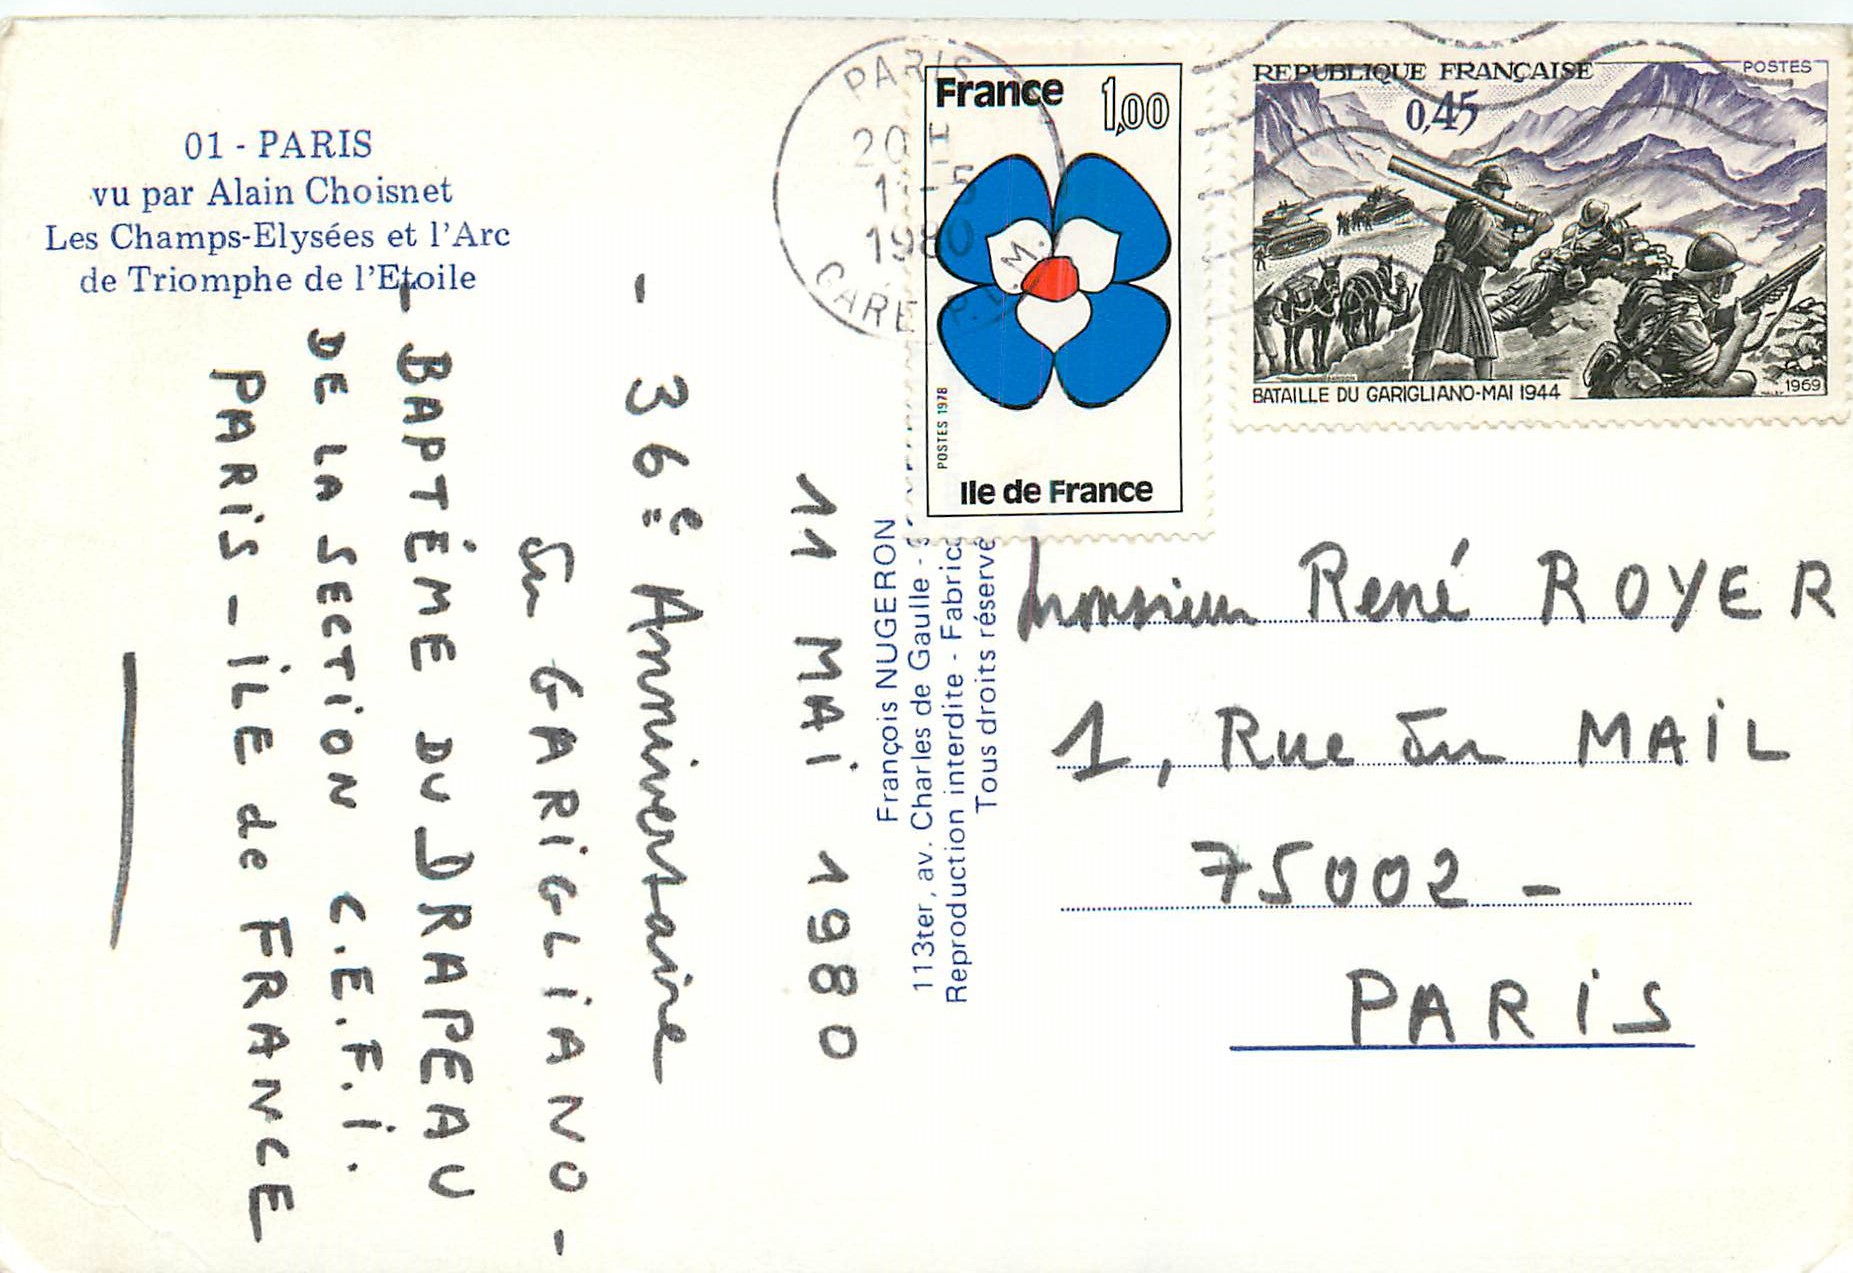 01 - PARIS
vu par Alain Choisnet
Les Champs-Elysées et l'Arc
de Triomphe de l'Etoile
11 MAI 1980
- 36è Anniversaire
du GARIGLIANO -
- BAPTÊME DU DRAPEAU
DE LA SECTION C.E.F.I.
PARIS - ILE de FRANCE
François NUGERON
113ter, av. Charles de Gaulle -
Reproduction interdite - Fabric
Tous droits réservé
PARIS
1980
GARE P.L.M.
France 1,00
POSTES 1978
Ile de France
REPUBLIQUE FRANÇAISE POSTES
0,45
BATAILLE DU GARIGLIANO-MAI 1944 1969
Monsieur René ROYER
1, Rue du MAIL
75002 -
PARIS